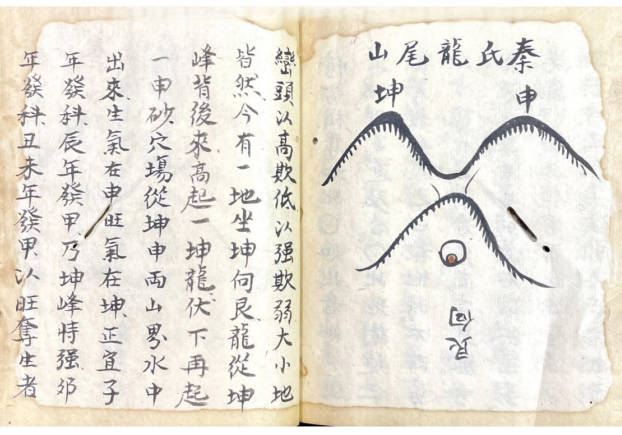 秦氏龍尾山
申
坤
艮向
巒頭以高欺低以强欺弱大小地
皆然今有一地坐坤向艮龍從坤
峰背後來高起一坤龍伏下再起
一申砂穴塲從坤申両山界水中
出來生氣在申旺氣在坤正宜子
年發科辰年發甲乃坤峰特强邜
年發科丑未年發甲以旺奪生者